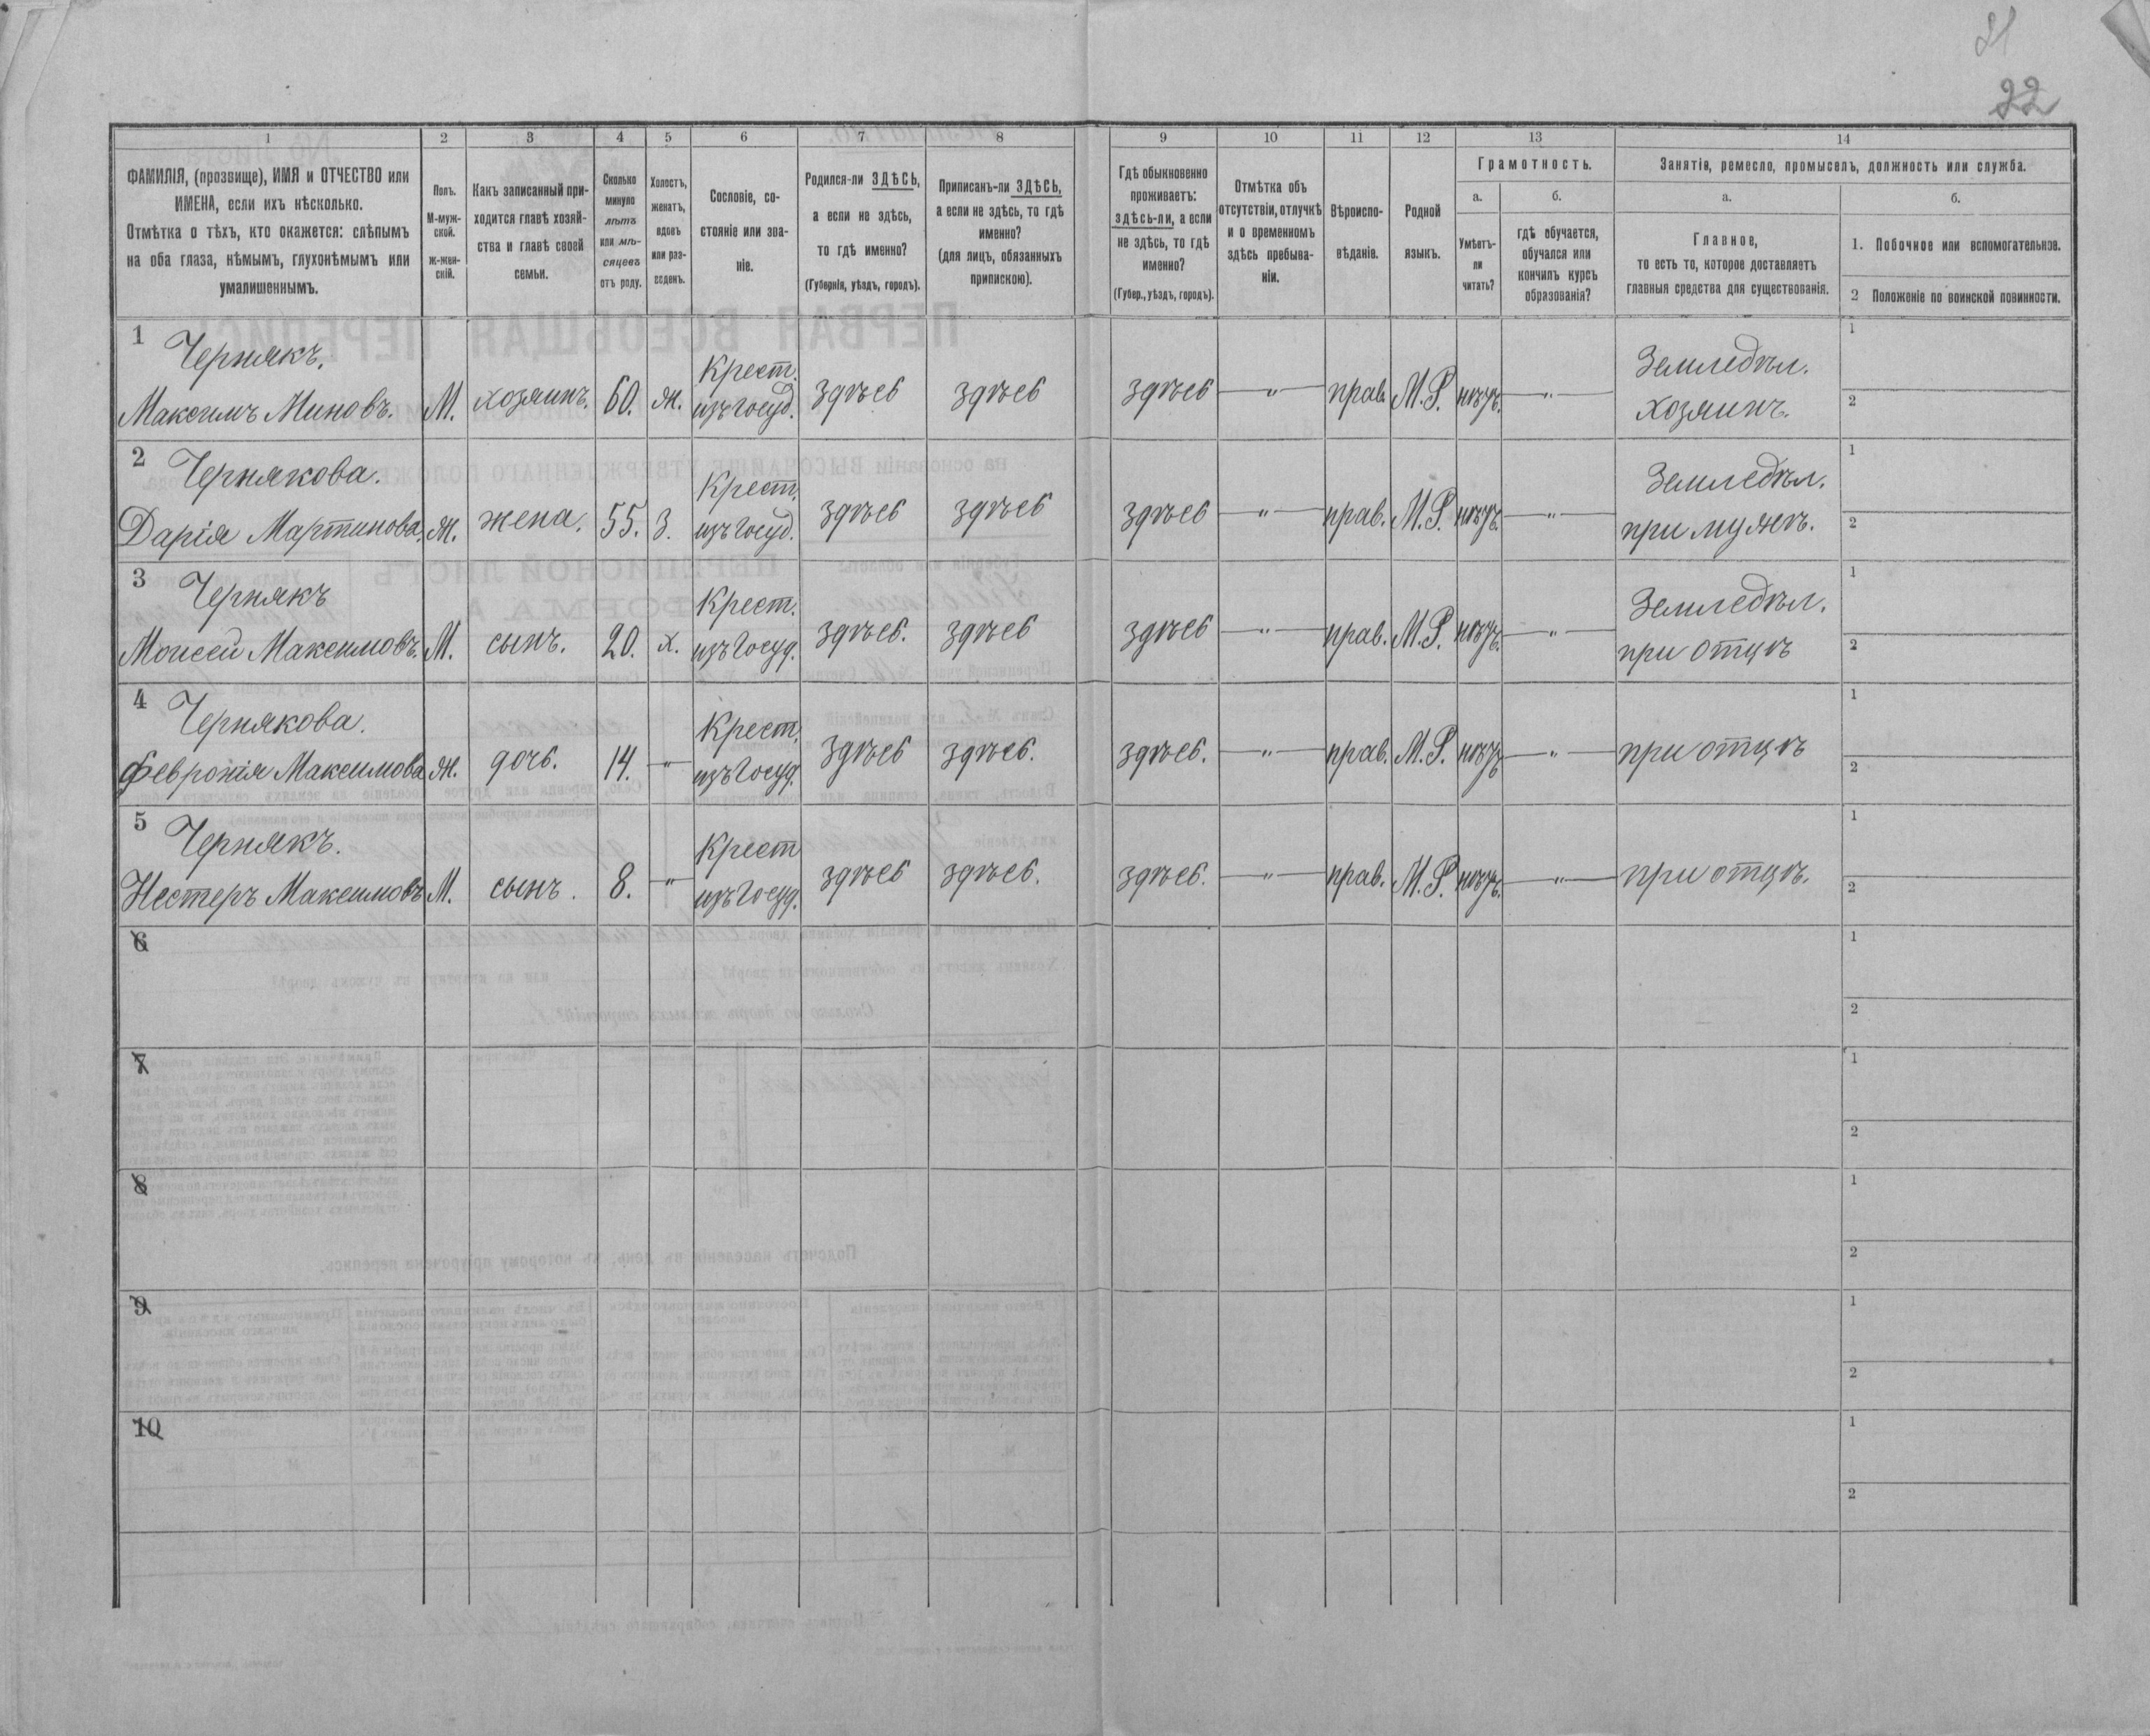 22
1 2 3 4 5 6 7 8 9 10 11 12 13 14
ФАМИЛІЯ, (прозвище), ИМЯ и ОТЧЕСТВО или
ИМЕНА, если ихъ нѣсколько.
Отмѣтка о тѣхъ, кто окажется: слѣпымъ
на оба глаза, нѣмымъ, глухонѣмымъ или
умалишеннымъ.
Полъ.
М-муж-
ской.
ж-жен-
скій.
Какъ записанный при-
ходится главѣ хозяй-
ства и главѣ своей
семьи.
Сколько
минуло
лѣтъ
или мѣ-
сяцевъ
отъ роду.
Холостъ,
женатъ,
вдовъ
или раз-
веденъ.
Сословіе, со-
стояніе или зва-
ніе.
Родился-ли ЗДѢСЬ,
а если не здѣсь,
то гдѣ именно?
(Губернія, уѣздъ, городъ).
Приписанъ-ли ЗДѢСЬ,
а если не здѣсь, то гдѣ
именно?
(для лицъ, обязанныхъ
припискою).
Гдѣ обыкновенно
проживаетъ:
здѣсь-ли, а если
не здѣсь, то гдѣ
именно?
(Губер., уѣздъ, городъ).
Отмѣтка объ
отсутствіи, отлучкѣ
и о временномъ
здѣсь пребыва-
ніи.
Вѣроиспо-
вѣданіе.
Родной
языкъ.
Грамотность.
а.
Умѣетъ-
ли
читать?
б.
гдѣ обучается,
обучался или
кончилъ курсъ
образованія?
Занятія, ремесло, промыселъ, должность или служба.
а.
Главное,
то есть то, которое доставляетъ
главныя средства для существованія.
б.
1. Побочное или вспомогательное.
2 Положеніе по воинской повинности.
1 Чернякъ.
Максимъ Миновъ. М. хозяинъ. 60. ж. Крест. изъ госуд. здѣсь здѣсь здѣсь — " — прав. М.Р. нѣтъ. — " — Земледѣл. хозяинъ. 1 2
2 Чернякова.
Дарія Мартинова. ж. жена. 55. З. Крест. изъ госуд. здѣсь здѣсь здѣсь — " — прав. М.Р. нѣтъ. — " — Земледѣл. при мужѣ. 1 2
3 Чернякъ
Моисей Максимовъ. М. сынъ. 20. х. Крест. изъ госуд. здѣсь. здѣсь здѣсь — " — прав. М.Р. нѣтъ. — " — Земледѣл. при отцѣ 1 2
4 Чернякова.
Февронія Максимова ж. дочь. 14. — " — Крест. изъ госуд. здѣсь здѣсь. здѣсь. — " — прав. М.Р. нѣтъ — " — при отцѣ 1 2
5 Чернякъ.
Нестеръ Максимовъ М. сынъ. 8. — " — Крест изъ госуд. здѣсь здѣсь. здѣсь. — " — прав. М.Р. нѣтъ. — " — при отцѣ. 1 2
6 1 2
7 1 2
8 1 2
9 1 2
10 1 2